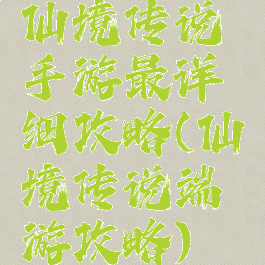 仙境传说
手游最详
细攻略(仙
境传说端
游攻略)